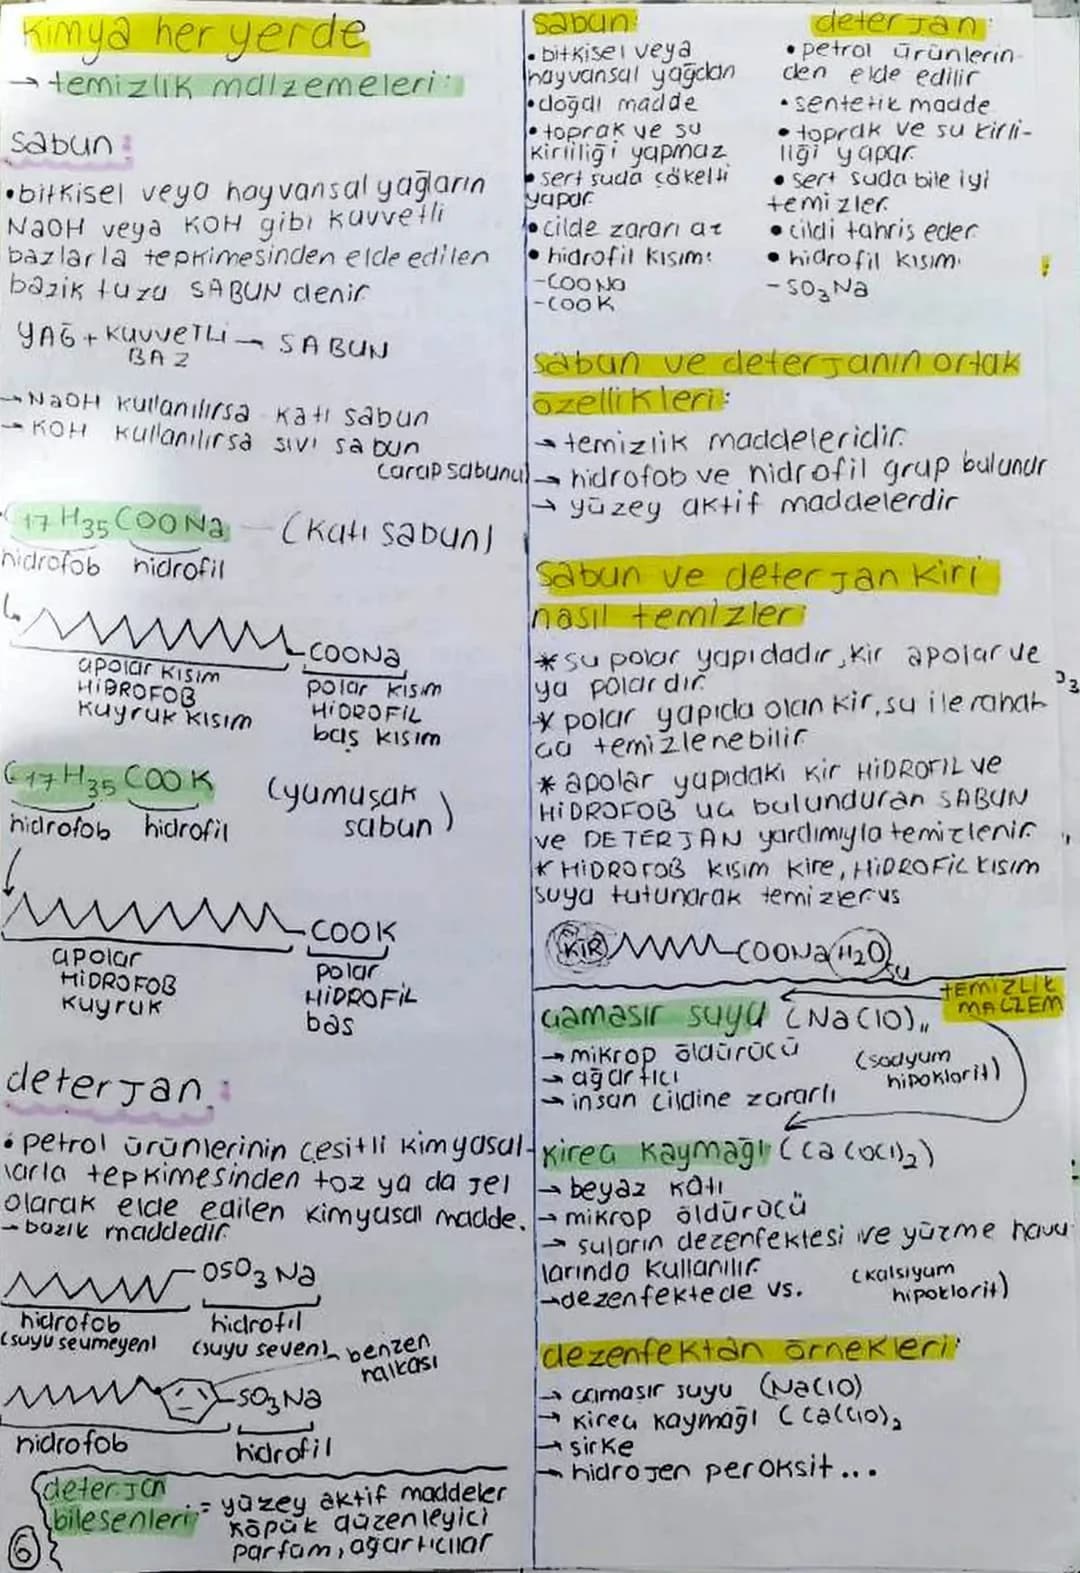 kimya her yerde
→ temizlik malzemeleri:
sabun:
• bitkisel veya hayvansal yağların
NaOH veya KOH gibi kuvvetli
bazlarla tepkimesinden elde edilen
bazik tuza SABUN denir
YAĞ + KUVVETLİ → SABUN
BAZ
→ NaOH kullanılırsa katı sabun
→ KOH kullanılırsa sıvı sabun
(arap sabunu)
C17H35COONa — (katı sabun)
hidrofob hidrofil
COONa
apolar kısım
HİDROFOB
kuyruk kısım
polar kısım
HİDROFİL
baş kısım
C17H35COOK (yumuşak
sabun)
hidrofob hidrofil
COOK
apolar
HİDROFOB
kuyruk
polar
HİDROFİL
bas
deterjan:
• petrol ürünlerinin çeşitli kimyasal-
larla tepkimesinden toz ya da jel
olarak elde edilen kimyasal madde.
→ bazik maddedir.
OSO3Na
hidrofob
(suyu sevmeyen)
hidrofil
(suyu seven)
benzen
halkası
SO3Na
hidrofob hidrofil
deterjan
bileşenleri
= yüzey aktif maddeler
köpük düzenleyici
parfüm, ağartıcılar
6
sabun:
• bitkisel veya
hayvansal yağdan
• doğal madde
• toprak ve su
kirliliği yapmaz
• sert suda çökelti
yapar
• cilde zararı az
• hidrofil kısım:
-COONa
-COOK
deterjan:
• petrol ürünlerin-
den elde edilir
• sentetik madde
• toprak ve su kirli-
liği yapar.
• sert suda bile iyi
temizler.
• cildi tahriş eder
• hidrofil kısım.
-SO3Na
sabun ve deterjanın ortak
özellikleri:
→ temizlik maddeleridir.
→ hidrofob ve hidrofil grup bulunur
→ yüzey aktif maddelerdir
sabun ve deterjan kiri
nasıl temizler:
* su polar yapıdadır, kir apolar ve
ya polardır.
* polar yapıda olan kir, su ile rahat
ca temizlenebilir
* apolar yapıdaki kir HİDROFİL ve
HİDROFOB uc bulunduran SABUN
ve DETERJAN yardımıyla temizlenir.
* HİDROFOB kısım kire, HİDROFİL kısım
suya tutunarak temizler vs
KİR COONa H2O
su
TEMİZLİK
MALZEM
çamaşır suyu (NaClO)
→ mikrop öldürücü
→ ağartıcı
→ insan cildine zararlı
(sodyum
hipoklorit)
kireç kaymağı (Ca(OCl)2)
→ beyaz katı
→ mikrop öldürücü
→ suların dezenfektesi ve yüzme havuz
larında kullanılır
→ dezenfektede vs.
(kalsiyum
hipoklorit)
dezenfektan örnekleri:
→ çamaşır suyu (NaClO)
→ kireç kaymağı (Ca(ClO)2
→ sirke
→ hidrojen peroksit...